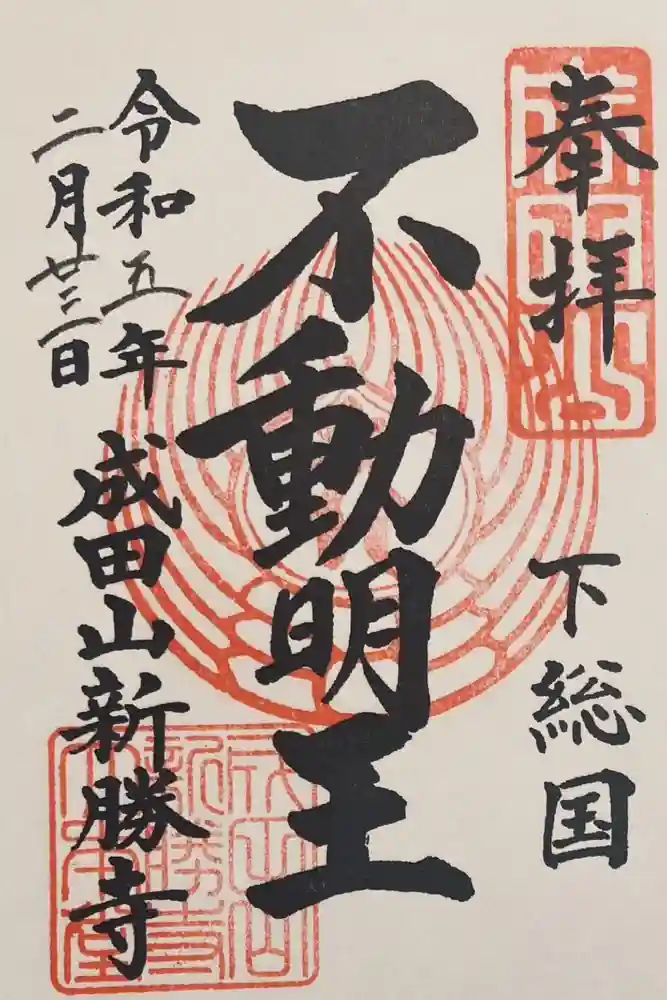 奉拝
下総国
不動明王
令和五年
二月廿三日
成田山新勝寺